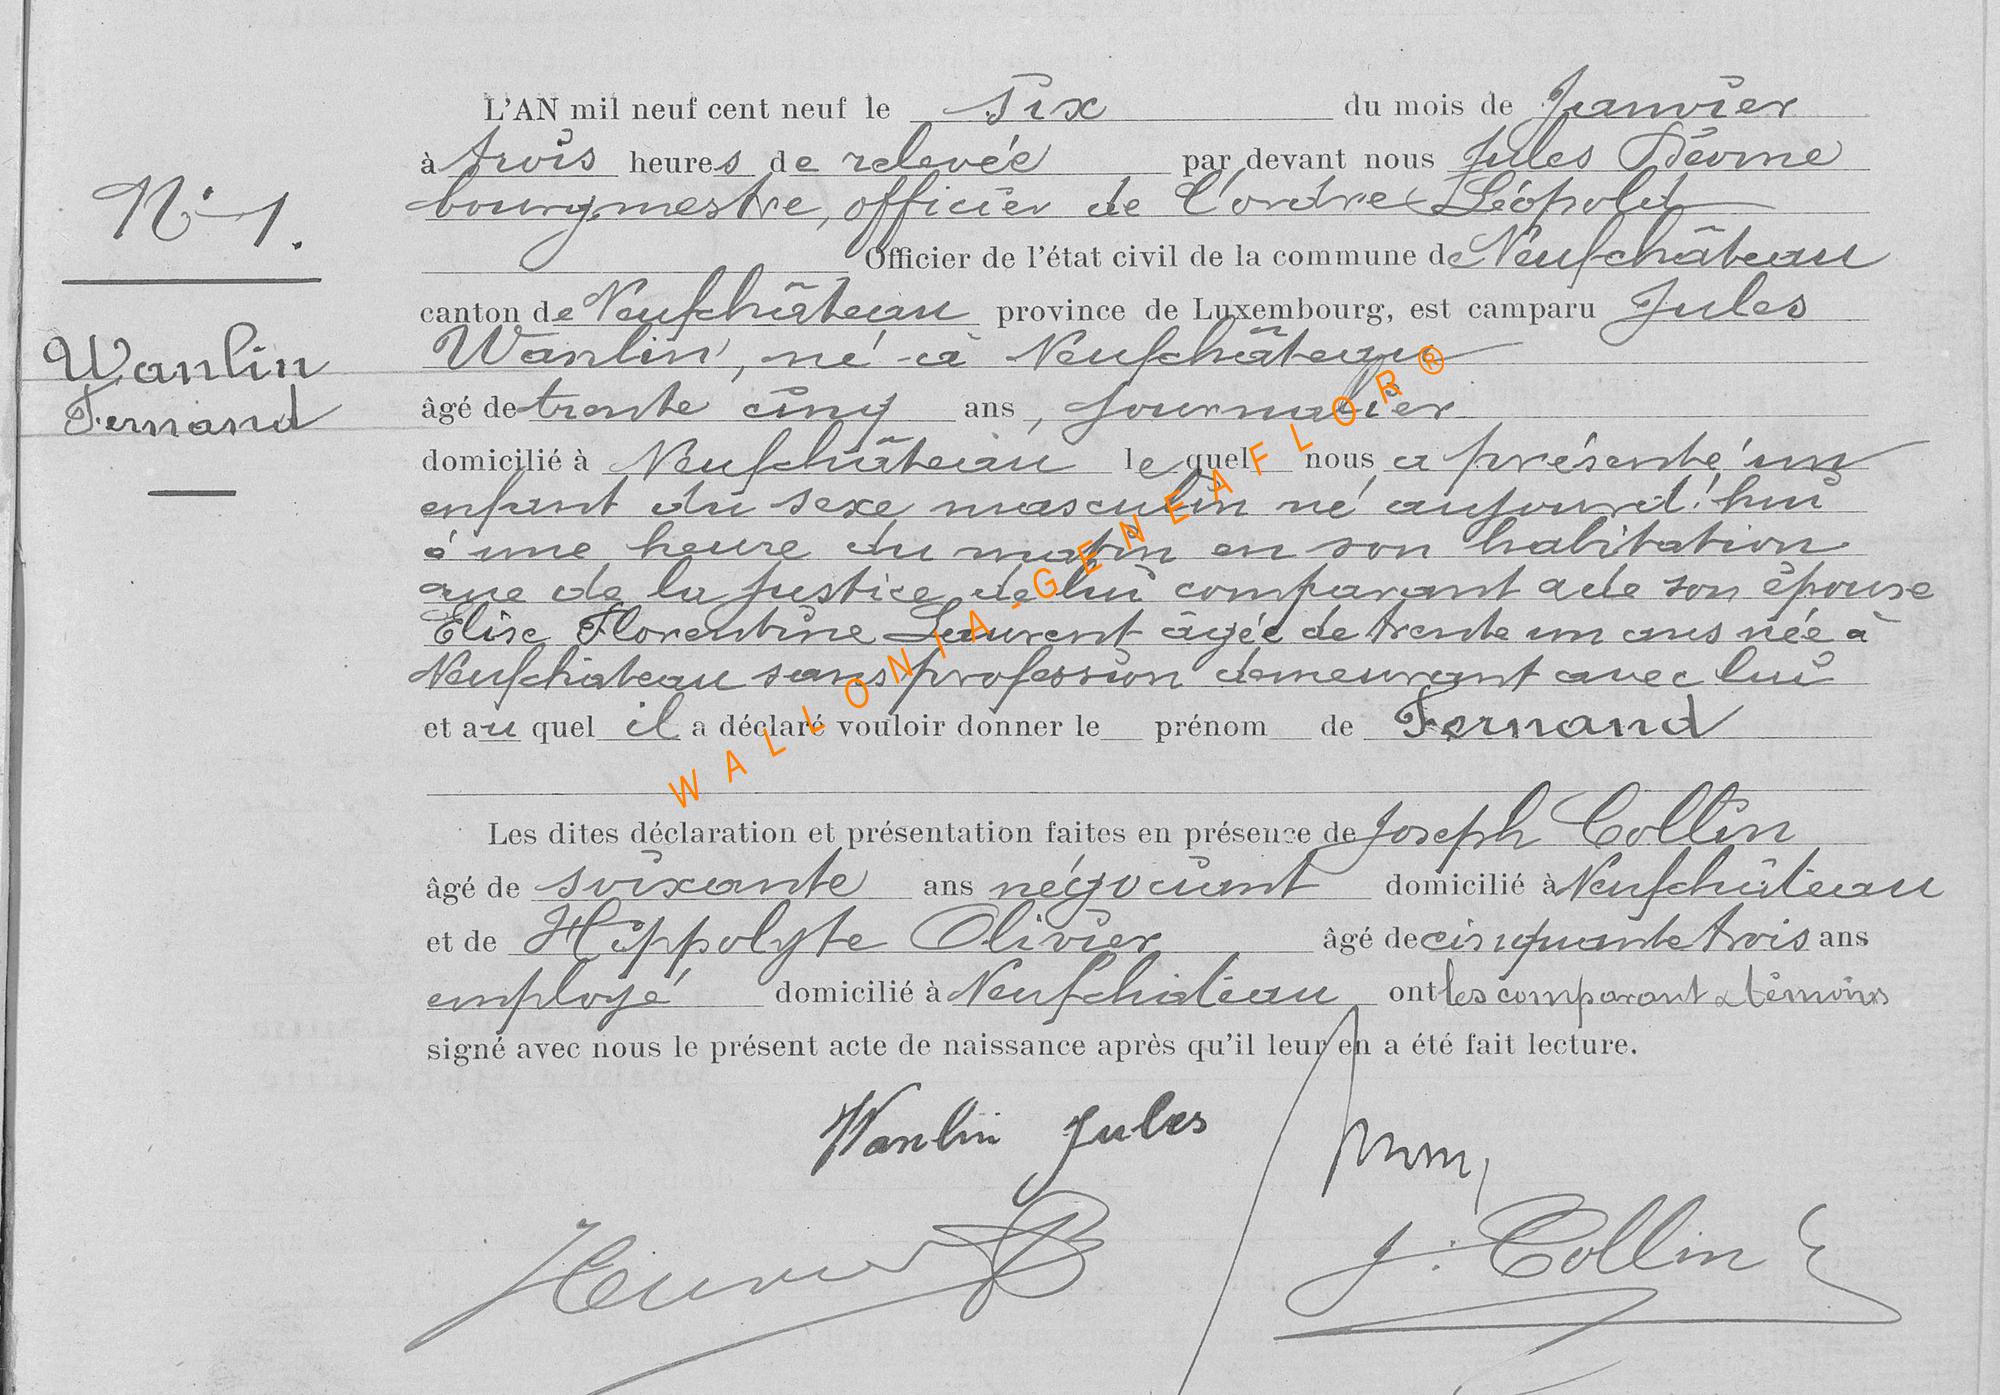 L'AN mil neuf cent neuf le six du mois de Janvier
à trois heures de relevée par devant nous Jules
bourgmestre, officier de l'ordre Léopold
Officier de l'état civil de la commune de Neufchâteau
canton de Neufchâteau province de Luxembourg, est camparu Jules
Wanlin, né à Neufchâteau
âgé de trente cinq ans, journalier
domicilié à Neufchâteau lequel nous a présenté un
enfant du sexe masculin né aujourd'hui
à une heure du matin en son habitation
rue de la justice de lui comparant & de son épouse
Elise Florentine Laurent âgée de trente un ans née à
Neufchateau sans profession demeurant avec lui
et au quel il a déclaré vouloir donner le prénom de Fernand
Les dites déclaration et présentation faites en présence de Joseph Collin
âgé de soixante ans négociant domicilié à Neufchâteau
et de Hippolyte Olivier âgé de cinquante trois ans
employé domicilié à Neufchâteau ont les comparant & témoins
signé avec nous le présent acte de naissance après qu'il leur en a été fait lecture.
N° 1.
Wanlin
Fernand
Wanlin Jules
J. Collin
WALLONIA-GENEAFLOR®